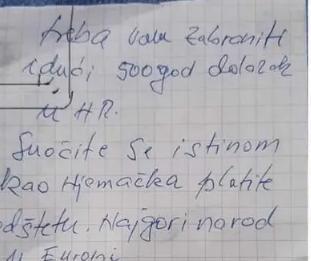 treba vam zabraniti
idući 500 god dolazak
u HR.
Suočite se istinom
kao Njemačka platite
odštetu. Najgori narod
u Europi